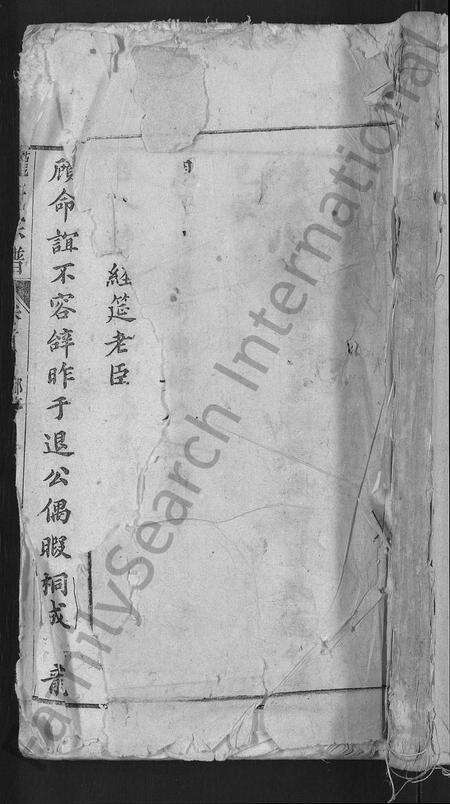 經筵老臣
顧命誼不容辭昨于退公偶暇桐城
譜
FamilySearch International